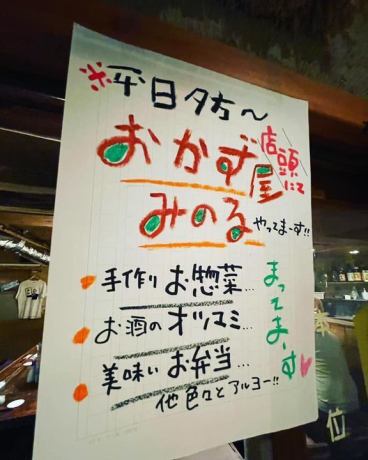 ※平日夕方〜
おかず屋
店頭にて
みのる
やってまーす!!
手作りお惣菜...
お酒のオツマミ...
美味いお弁当...
他色々とアルヨー!!
まってまーす
位